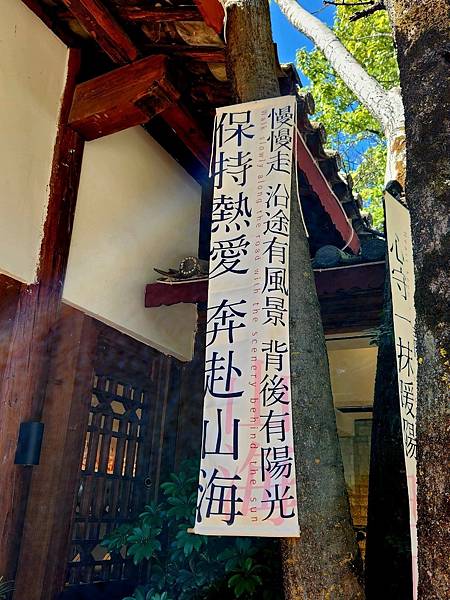 慢慢走 沿途有風景 背後有陽光
Walk slowly along the road with the scenery behind the sun
保持熱愛 奔赴山海
心守一抹暖陽